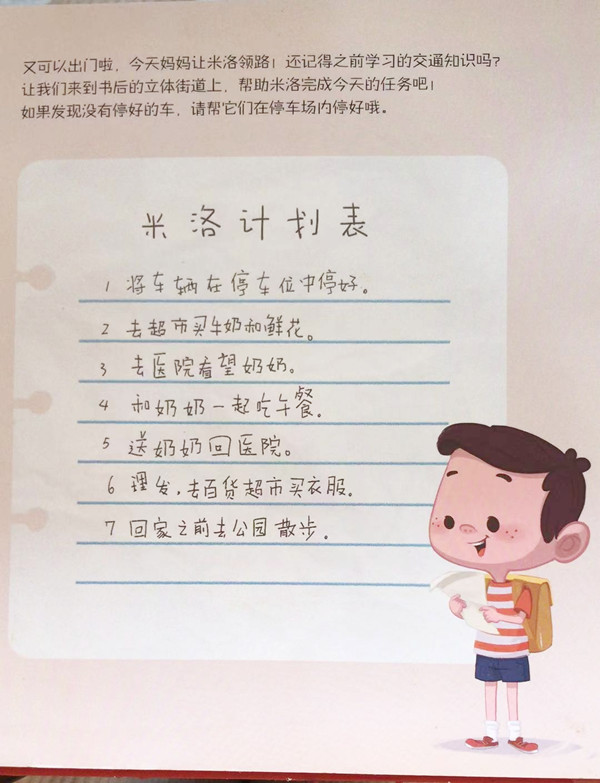 又可以出门啦，今天妈妈让米洛领路！还记得之前学习的交通知识吗？
让我们来到书后的立体街道上，帮助米洛完成今天的任务吧！
如果发现没有停好的车，请帮它们在停车场内停好哦。
米洛计划表
1 将车辆在停车位中停好。
2 去超市买牛奶和鲜花。
3 去医院看望奶奶。
4 和奶奶一起吃午餐。
5 送奶奶回医院。
6 理发，去百货超市买衣服。
7 回家之前去公园散步。